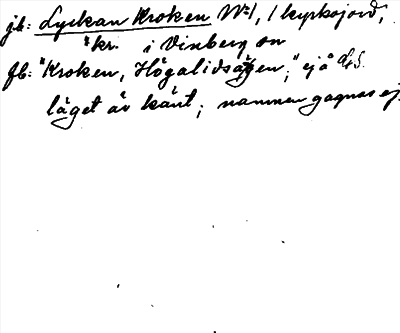 jb: Lyckan Kroken No 1, 1 kyrksjord,
"kr. i Vinberg sn
fb: "Kroken, Högalidsägen," ej å
läget är känt; namnen gagnas ej.